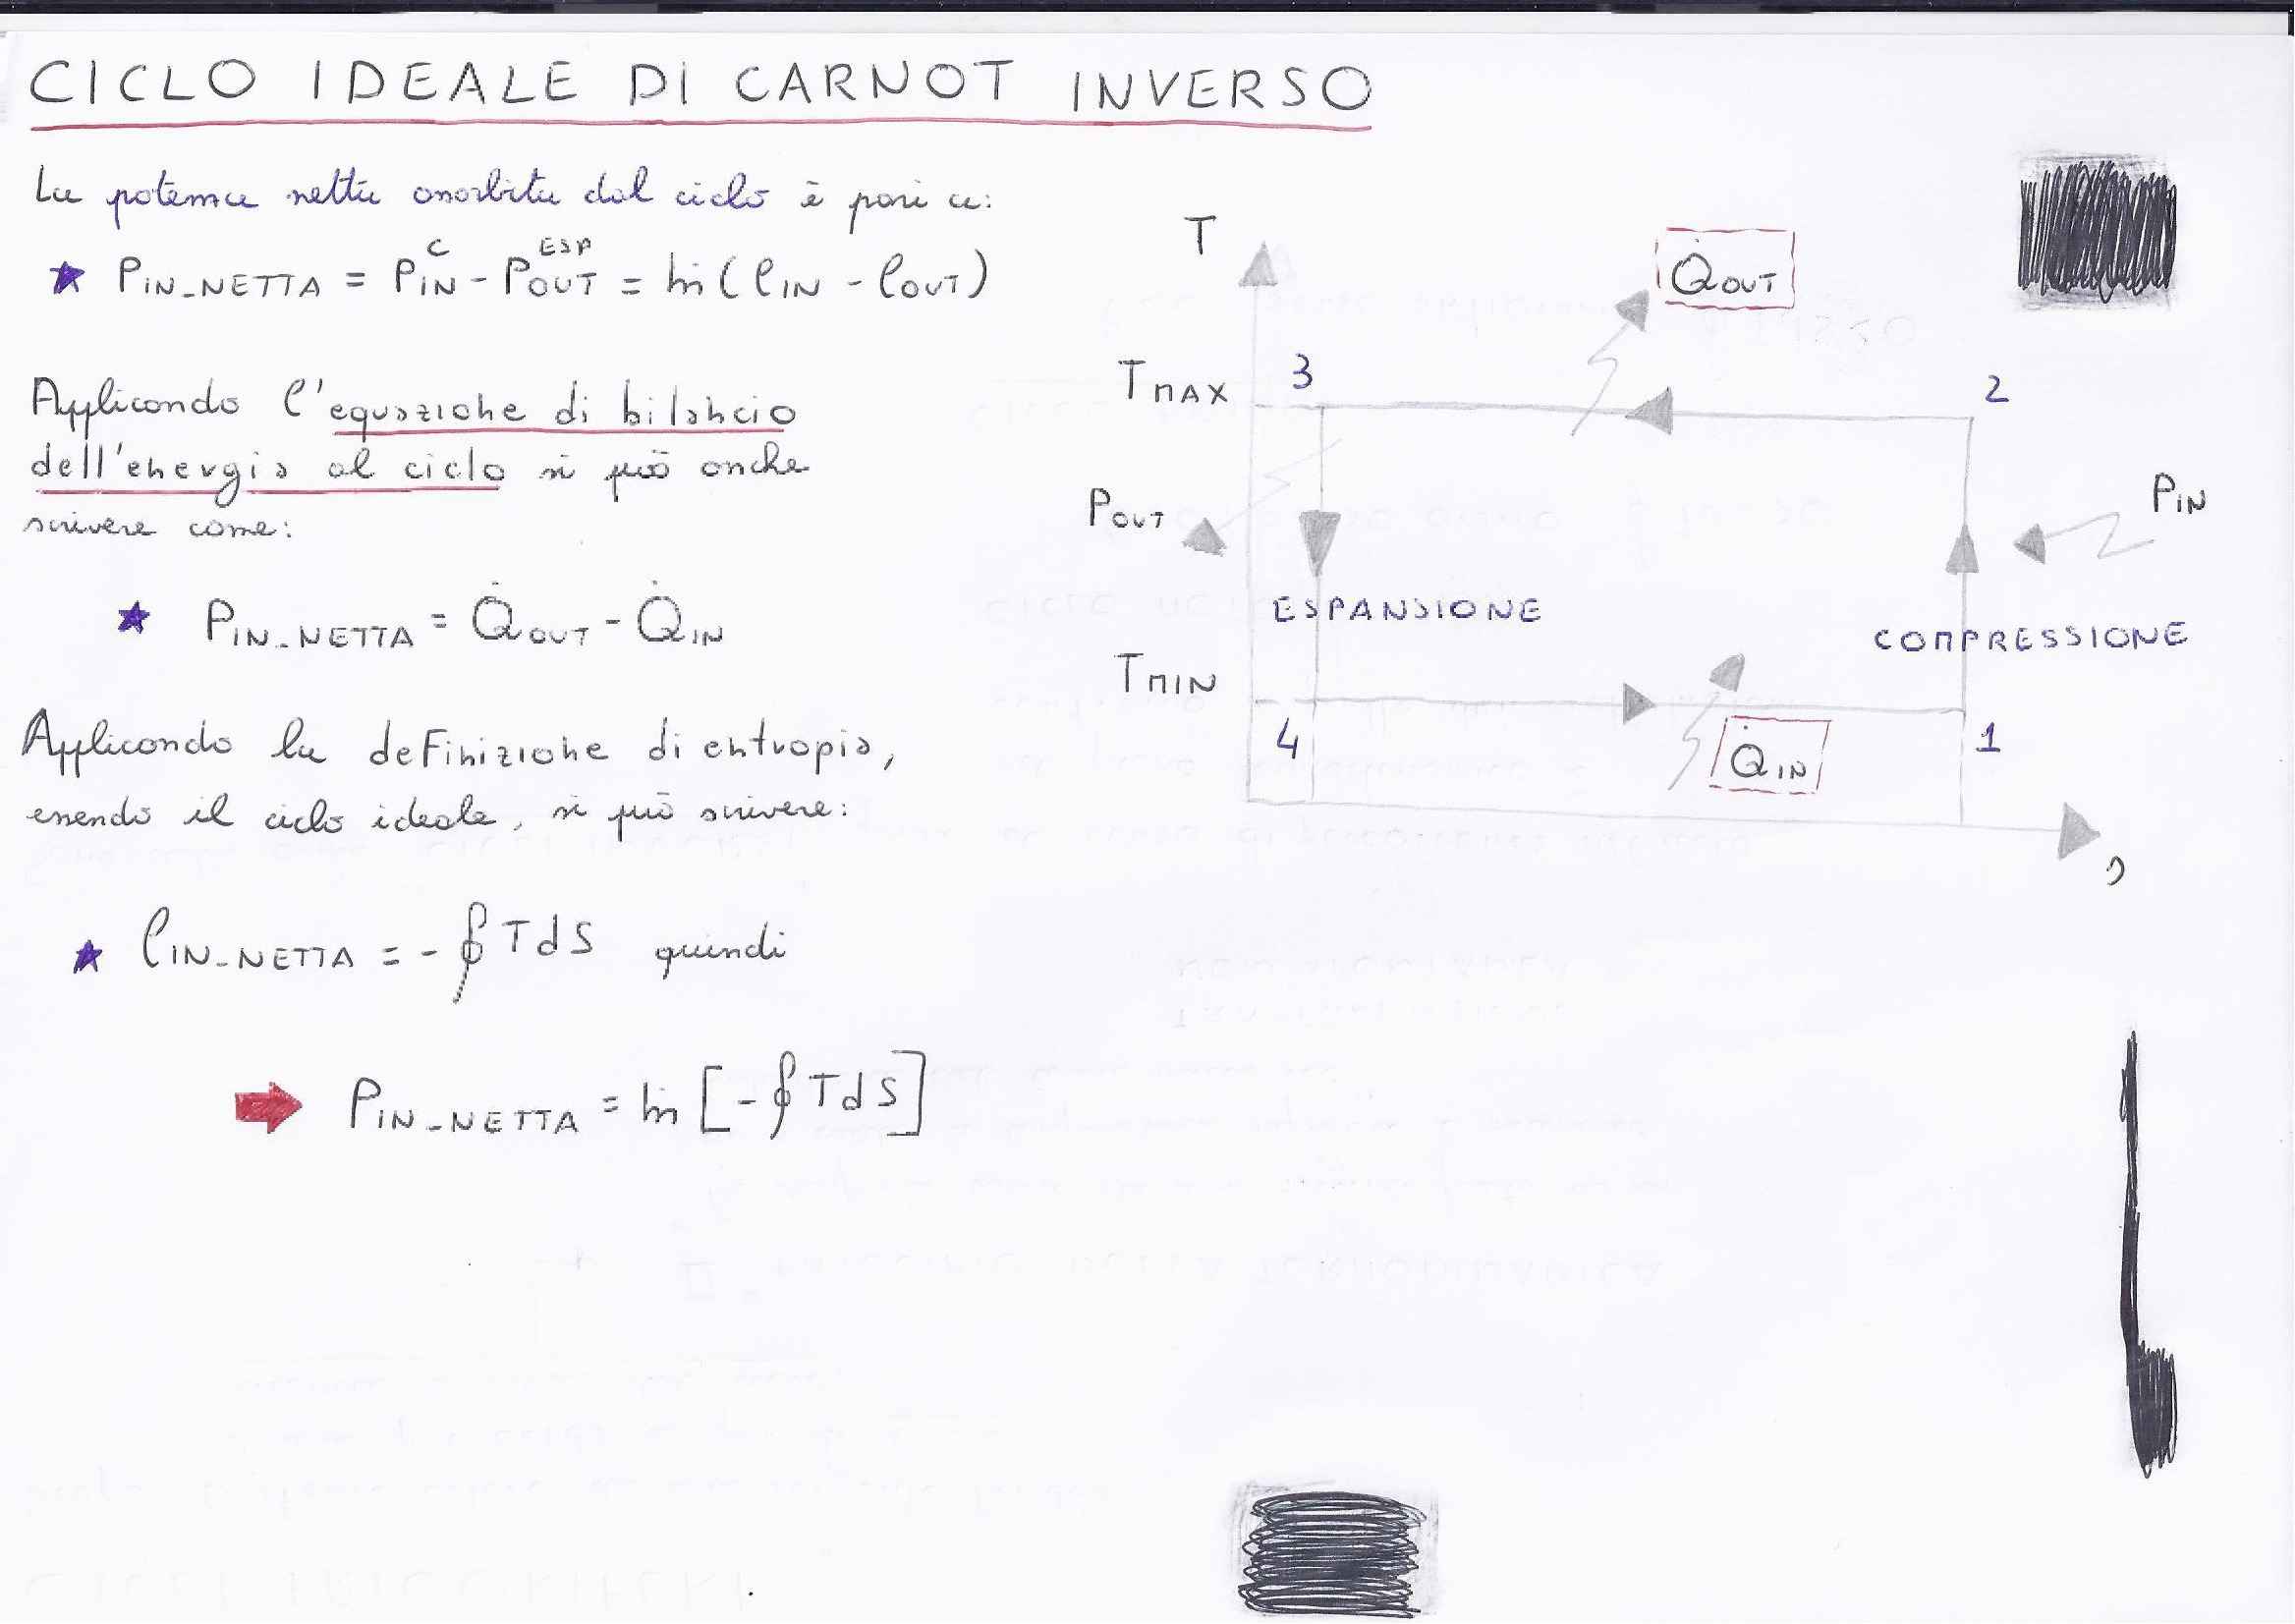 CICLO IDEALE DI CARNOT INVERSO
La potenza netta assorbita dal ciclo è pari a:
★ PIN_NETTA = PIN^C - POUT^ESP = ṁ(lIN - lOUT)
Applicando l'equazione di bilancio
dell'energia al ciclo si può anche
scrivere come:
★ PIN_NETTA = Q̇OUT - Q̇IN
Applicando la definizione di entropia,
essendo il ciclo ideale, si può scrivere:
★ lIN_NETTA = - ∮ TdS quindi
PIN_NETTA = ṁ [- ∮ TdS]
T
Q̇OUT
TMAX
3
2
POUT
PIN
ESPANSIONE
COMPRESSIONE
TMIN
4
1
Q̇IN
s